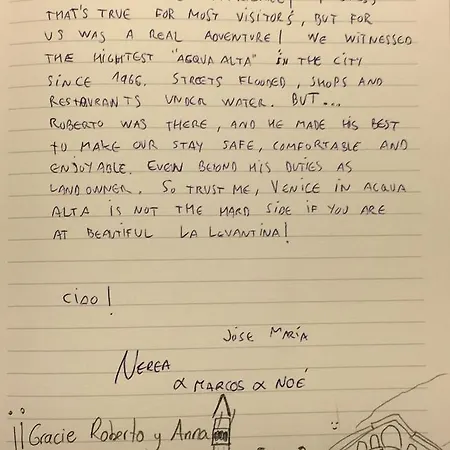 THAT'S TRUE FOR MOST VISITORS, BUT FOR
US WAS A REAL ADVENTURE! WE WITNESSED
THE HIGHTEST "ACQUA ALTA" IN THE CITY
SINCE 1966. STREETS FLOODED, SHOPS AND
RESTAURANTS UNDER WATER. BUT...
ROBERTO WAS THERE, AND HE MADE HIS BEST
TO MAKE OUR STAY SAFE, COMFORTABLE AND
ENJOYABLE. EVEN BEIOND HIS DUTIES AS
LANDOWNER. SO TRUST ME, VENICE IN ACQUA
ALTA IS NOT THE HARD SIDE IF YOU ARE
AT BEAUTIFUL LA LEVANTINA!
CIAO!
JOSE MARÍA
NEREA
& MARCOS & NOÉ
¡¡Gracie Roberto y Anna